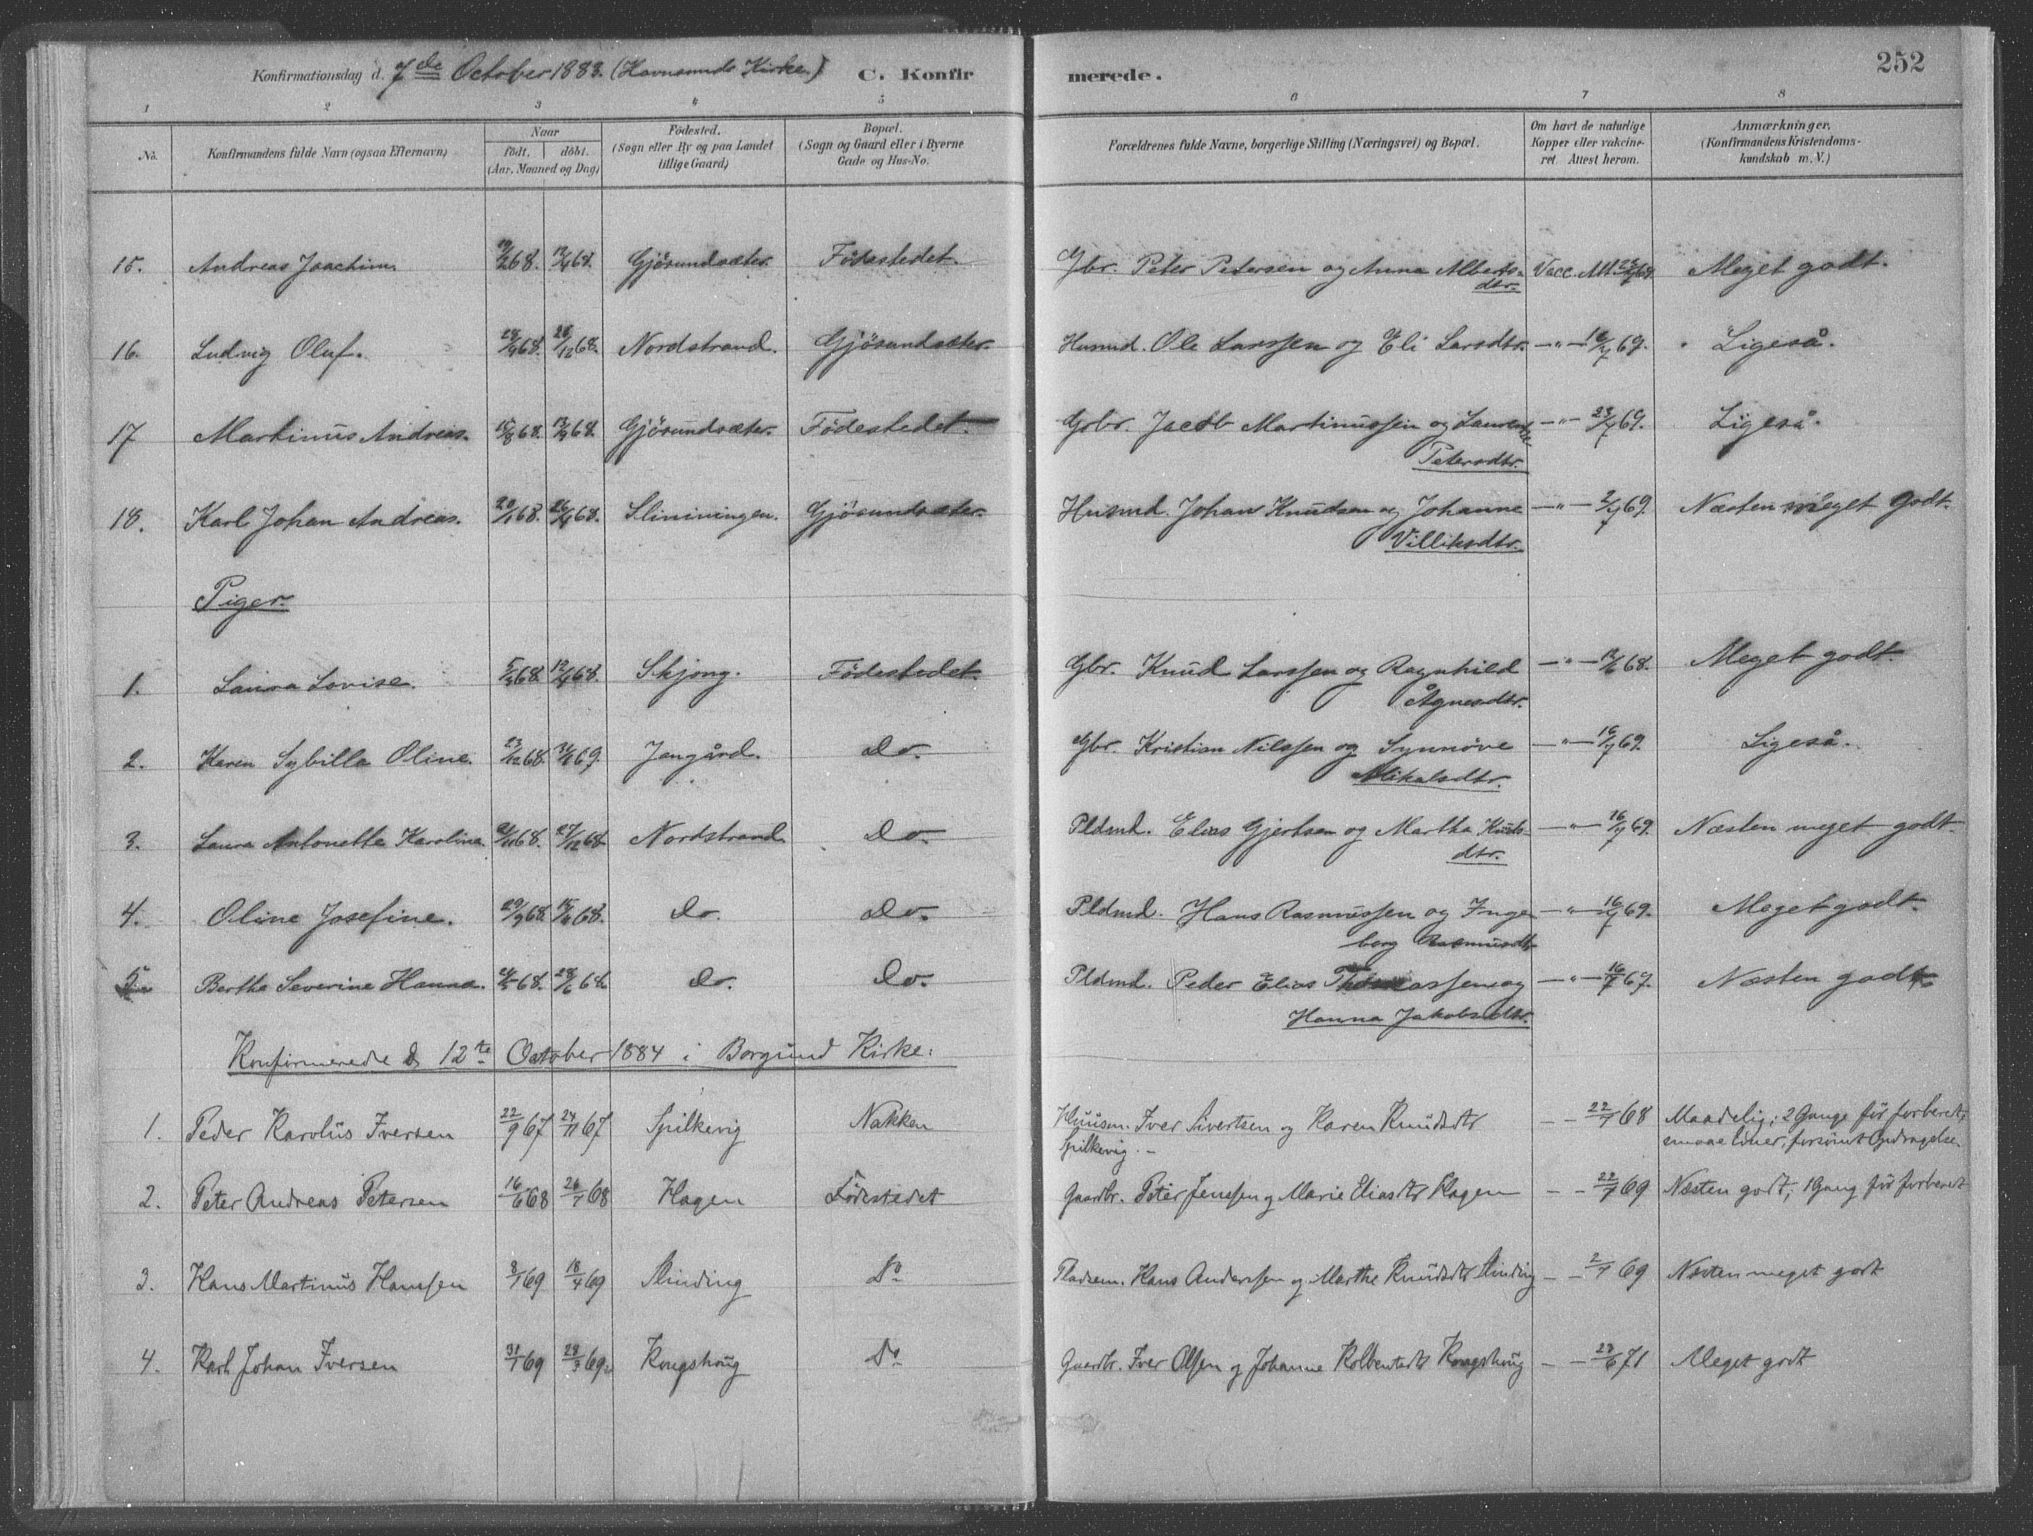 252
Konfirmationsdag d. 7de October 1883. (Havnsunds Kirke.) C. Konfirmerede.
1 2 3 4 5 6 7 8
No. Konfirmandens fulde Navn (ogsaa Efternavn) Naar födt, döbt. (Aar, Maaned og Dag) Födested. (Sogn eller By og paa Landet tillige Gaard) Bopæl. (Sogn og Gaard eller i Byerne Gade og Hus-No. Forældrenes fulde Navne, borgerlige Stilling (Næringsvei) og Bopæl. Om havt de naturlige Kopper eller vakcineret. Attest herom. Anmærkninger. (Konfirmandens Kristendomskundskab m. V.)
15. Andreas Joachim. 19/2 68. 12/4 68. Gjösundsæter. Födestedet. Gbr. Peter Petersen og Anna Albertsdtr. Vacc. Att. 68 Meget godt.
16. Ludvig Oluf. 68. 26/12 68. Nordstrand. Gjösundsæter. Husmd. Ole Larssen og Eli Larsdtr. —"— 16/7 69. Ligeså.
17 Martinus Andreas. 15/8 68. 68. Gjösundsæter. Födestedet. Grbr. Jacob Martinussen og Laurentse Petersdtr. —"— 23/7 69. Ligeså.
18. Karl Johan Andreas. 20/1 68. 26/4 68. Slininingen. Gjösundsæter. Husmd. Johan Knudsen og Johanne Villiksdtr. —"— 2/7 69. Næsten meget godt.
Piger.
1. Laura Lovise. 5/3 68. 12/4 68. Skjong. Födestedet. Gbr. Knud Larssen og Ragnhild Ågnesdtr. —"— 68. Meget godt.
2. Karen Sybilla Oline. 23/12 68. 69. Jangård. Do. Gbr. Kristian Nilssen og Synnöve Mikalsdtr. —"— 16/7 69. Ligeså.
3. Laura Antonette Karoline. 68. 27/12 68. Nordstrand. Do. Pldmd. Elias Gjertsen og Martha Knutsdtr. —"— 16/7 69. Næsten meget godt.
4. Oline Josefine. 20/9 68. 68. Do. Do. Pldmd. Hans Rasmussen og Ingeborg Rasmusdtr. —"— 16/7 69. Meget godt.
5 Berthe Severine Hanna. 68. 28/6 68. Do. Do. Pldmd. Peder Elias Thomassen og Hanna Jakobsdtr. —"— 16/7 69. Næsten godt.
Konfirmerede d 12te October 1884 i Borgund Kirke:
1. Peder Karolus Iversen 22/9 67 24/11 67 Spilkevig Nakken Huusm. Iver Sivertsen og Karen Knudsdtr Spilkevig. — — 22/7 68 Maadelig; 2 Gange för forberedt, forsömt Opdragelse.
2. Peter Andreas Petersen 16/6 68 26/7 68 Hagen Födestedet Gaardbr. Peter Jenssen og Marie Eliasdtr Hagen — — 22/7 69 Næsten godt, 1 Gang för forberedt
3. Hans Martinus Hanssen 8/1 69 18/4 69 Slinding Do Pladsem. Hans Anderssen og Marthe Knudsdtr Slinding — — 2/7 69 Næsten meget godt
4. Karl Johan Iversen 31/1 69 28/3 69. Kongshoug Do Gaardbr. Iver Olsen og Johanne Kolbentsdtr Kongshoug — — 28/6 71 Meget godt